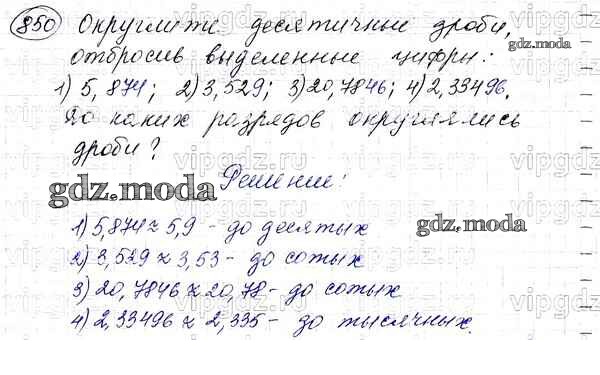 850 Округлите десятичные дроби,
отбросив выделенные цифры:
1) 5,874; 2) 3,529; 3) 20,7846; 4) 2,33496.
До каких разрядов округлялись
дроби?
Решение:
1) 5,874 ≈ 5,9 - до десятых
2) 3,529 ≈ 3,53 - до сотых
3) 20,7846 ≈ 20,78 - до сотых
4) 2,33496 ≈ 2,335 - до тысячных.
gdz.moda
gdz.moda
gdz.moda
vipgdz.ru